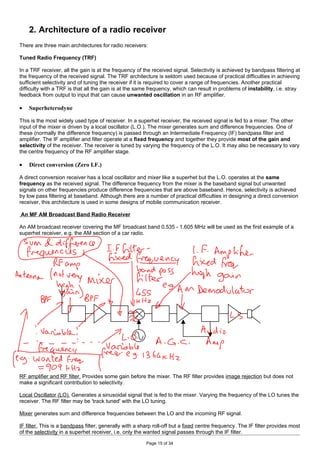 2. Architecture of a radio receiver
There are three main architectures for radio receivers:
Tuned Radio Frequency (TRF)
In a TRF receiver, all the gain is at the frequency of the received signal. Selectivity is achieved by bandpass filtering at
the frequency of the received signal. The TRF architecture is seldom used because of practical difficulties in achieving
sufficient selectivity and of tuning the receiver if it is required to cover a range of frequencies. Another practical
difficulty with a TRF is that all the gain is at the same frequency, which can result in problems of instability, i.e. stray
feedback from output to input that can cause unwanted oscillation in an RF amplifier.
• Superheterodyne
This is the most widely used type of receiver. In a superhet receiver, the received signal is fed to a mixer. The other
input of the mixer is driven by a local oscillator (L.O.). The mixer generates sum and difference frequencies. One of
these (normally the difference frequency) is passed through an Intermediate Frequency (IF) bandpass filter and
amplifier. The IF amplifier and filter operate at a fixed frequency and together they provide most of the gain and
selectivity of the receiver. The receiver is tuned by varying the frequency of the L.O. It may also be necessary to vary
the centre frequency of the RF amplifier stage.
• Direct conversion (Zero I.F.)
A direct conversion receiver has a local oscillator and mixer like a superhet but the L.O. operates at the same
frequency as the received signal. The difference frequency from the mixer is the baseband signal but unwanted
signals on other frequencies produce difference frequencies that are above baseband. Hence, selectivity is achieved
by low pass filtering at baseband. Although there are a number of practical difficulties in designing a direct conversion
receiver, this architecture is used in some designs of mobile communication receiver.
An MF AM Broadcast Band Radio Receiver
An AM broadcast receiver covering the MF broadcast band 0.535 - 1.605 MHz will be used as the first example of a
superhet receiver, e.g. the AM section of a car radio.
Sum & difference
frequencies
I F filter -
fixed frequency
band pass
filter
455
kHz
I.F. Amplifier
fixed freq
high gain
RF amp
(not very
high
gain)
Antenna
Mixer
eg Am Demodulator
BPF
BPF
L/S
Variable
frequency
L.O.
Variable
freq eg 1364 kHz
A.G.C.
Audio
Amp
eg wanted freq
= 909 kHz
RF amplifier and RF filter. Provides some gain before the mixer. The RF filter provides image rejection but does not
make a significant contribution to selectivity.
Local Oscillator (LO). Generates a sinusoidal signal that is fed to the mixer. Varying the frequency of the LO tunes the
receiver. The RF filter may be 'track tuned' with the LO tuning.
Mixer generates sum and difference frequencies between the LO and the incoming RF signal.
IF filter. This is a bandpass filter, generally with a sharp roll-off but a fixed centre frequency. The IF filter provides most
of the selectivity in a superhet receiver, i.e. only the wanted signal passes through the IF filter.
Page 15 of 34